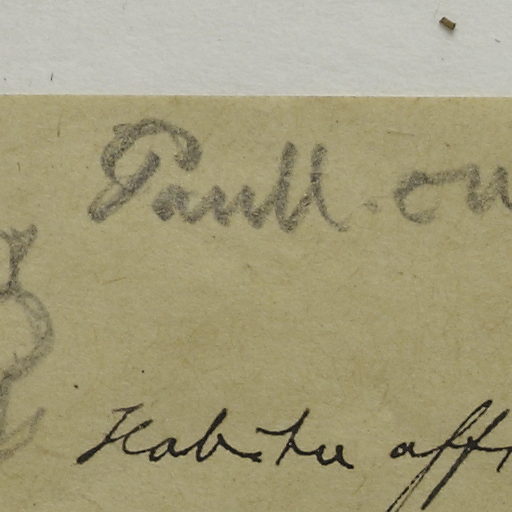 Paull. cu
Habitu aff